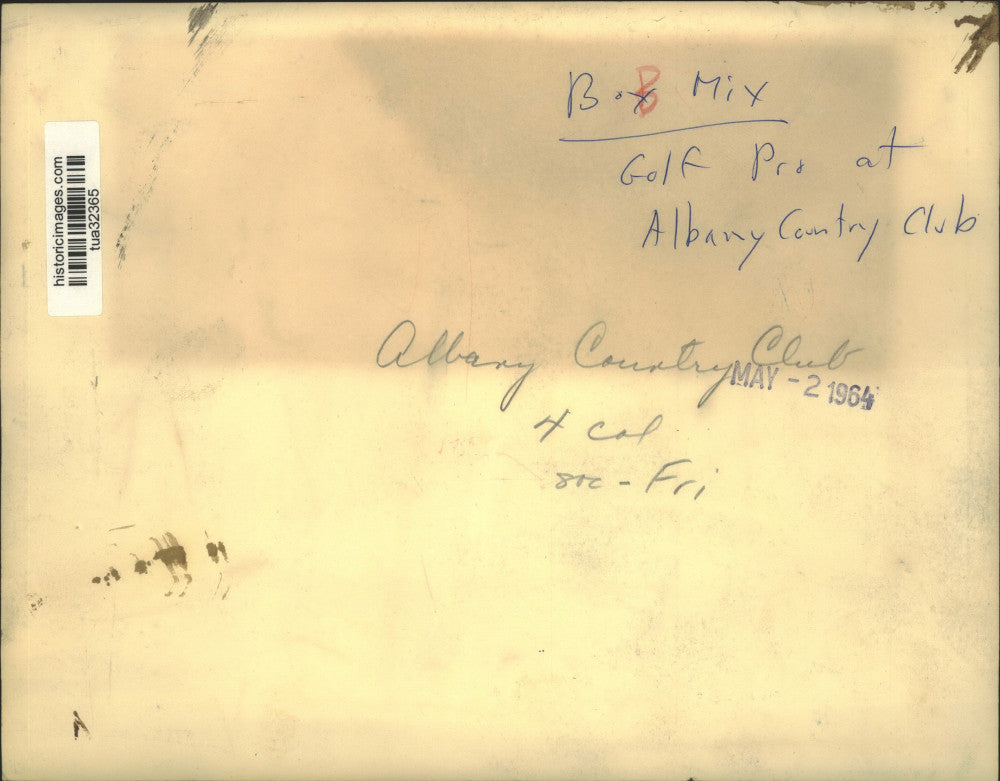 historicimages.com
tua32365
Box Mix
B
Golf Pro at
Albany Country Club
Albany Country Club
MAY - 2 1964
4 col
soc - Fri